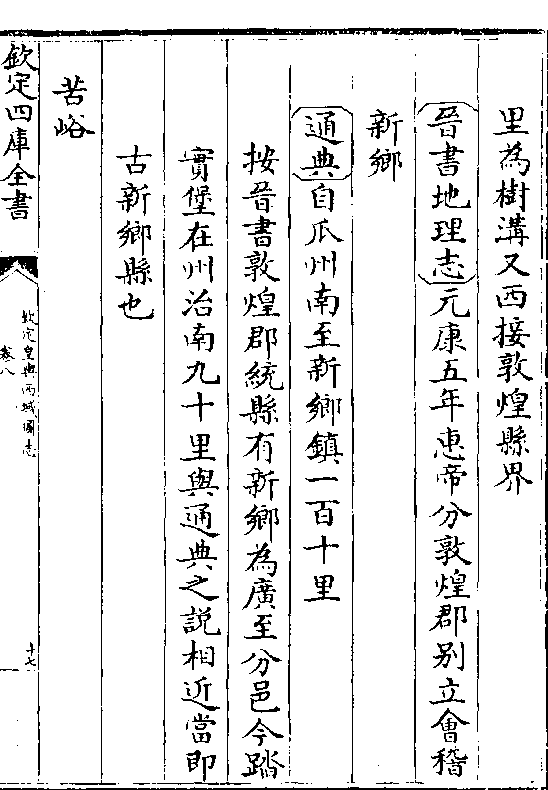 里為樹溝又西接敦煌縣界
晉書地理志元康五年惠帝分敦煌郡别立會稽
新鄉
通典自瓜州南至新鄉鎮一百十里
按晉書敦煌郡統縣有新鄉為廣至分邑今踏
實堡在州治南九十里與通典之説相近當即
古新鄉縣也
苦峪
欽定四庫全書
欽定皇輿西域圖志
卷八
十七